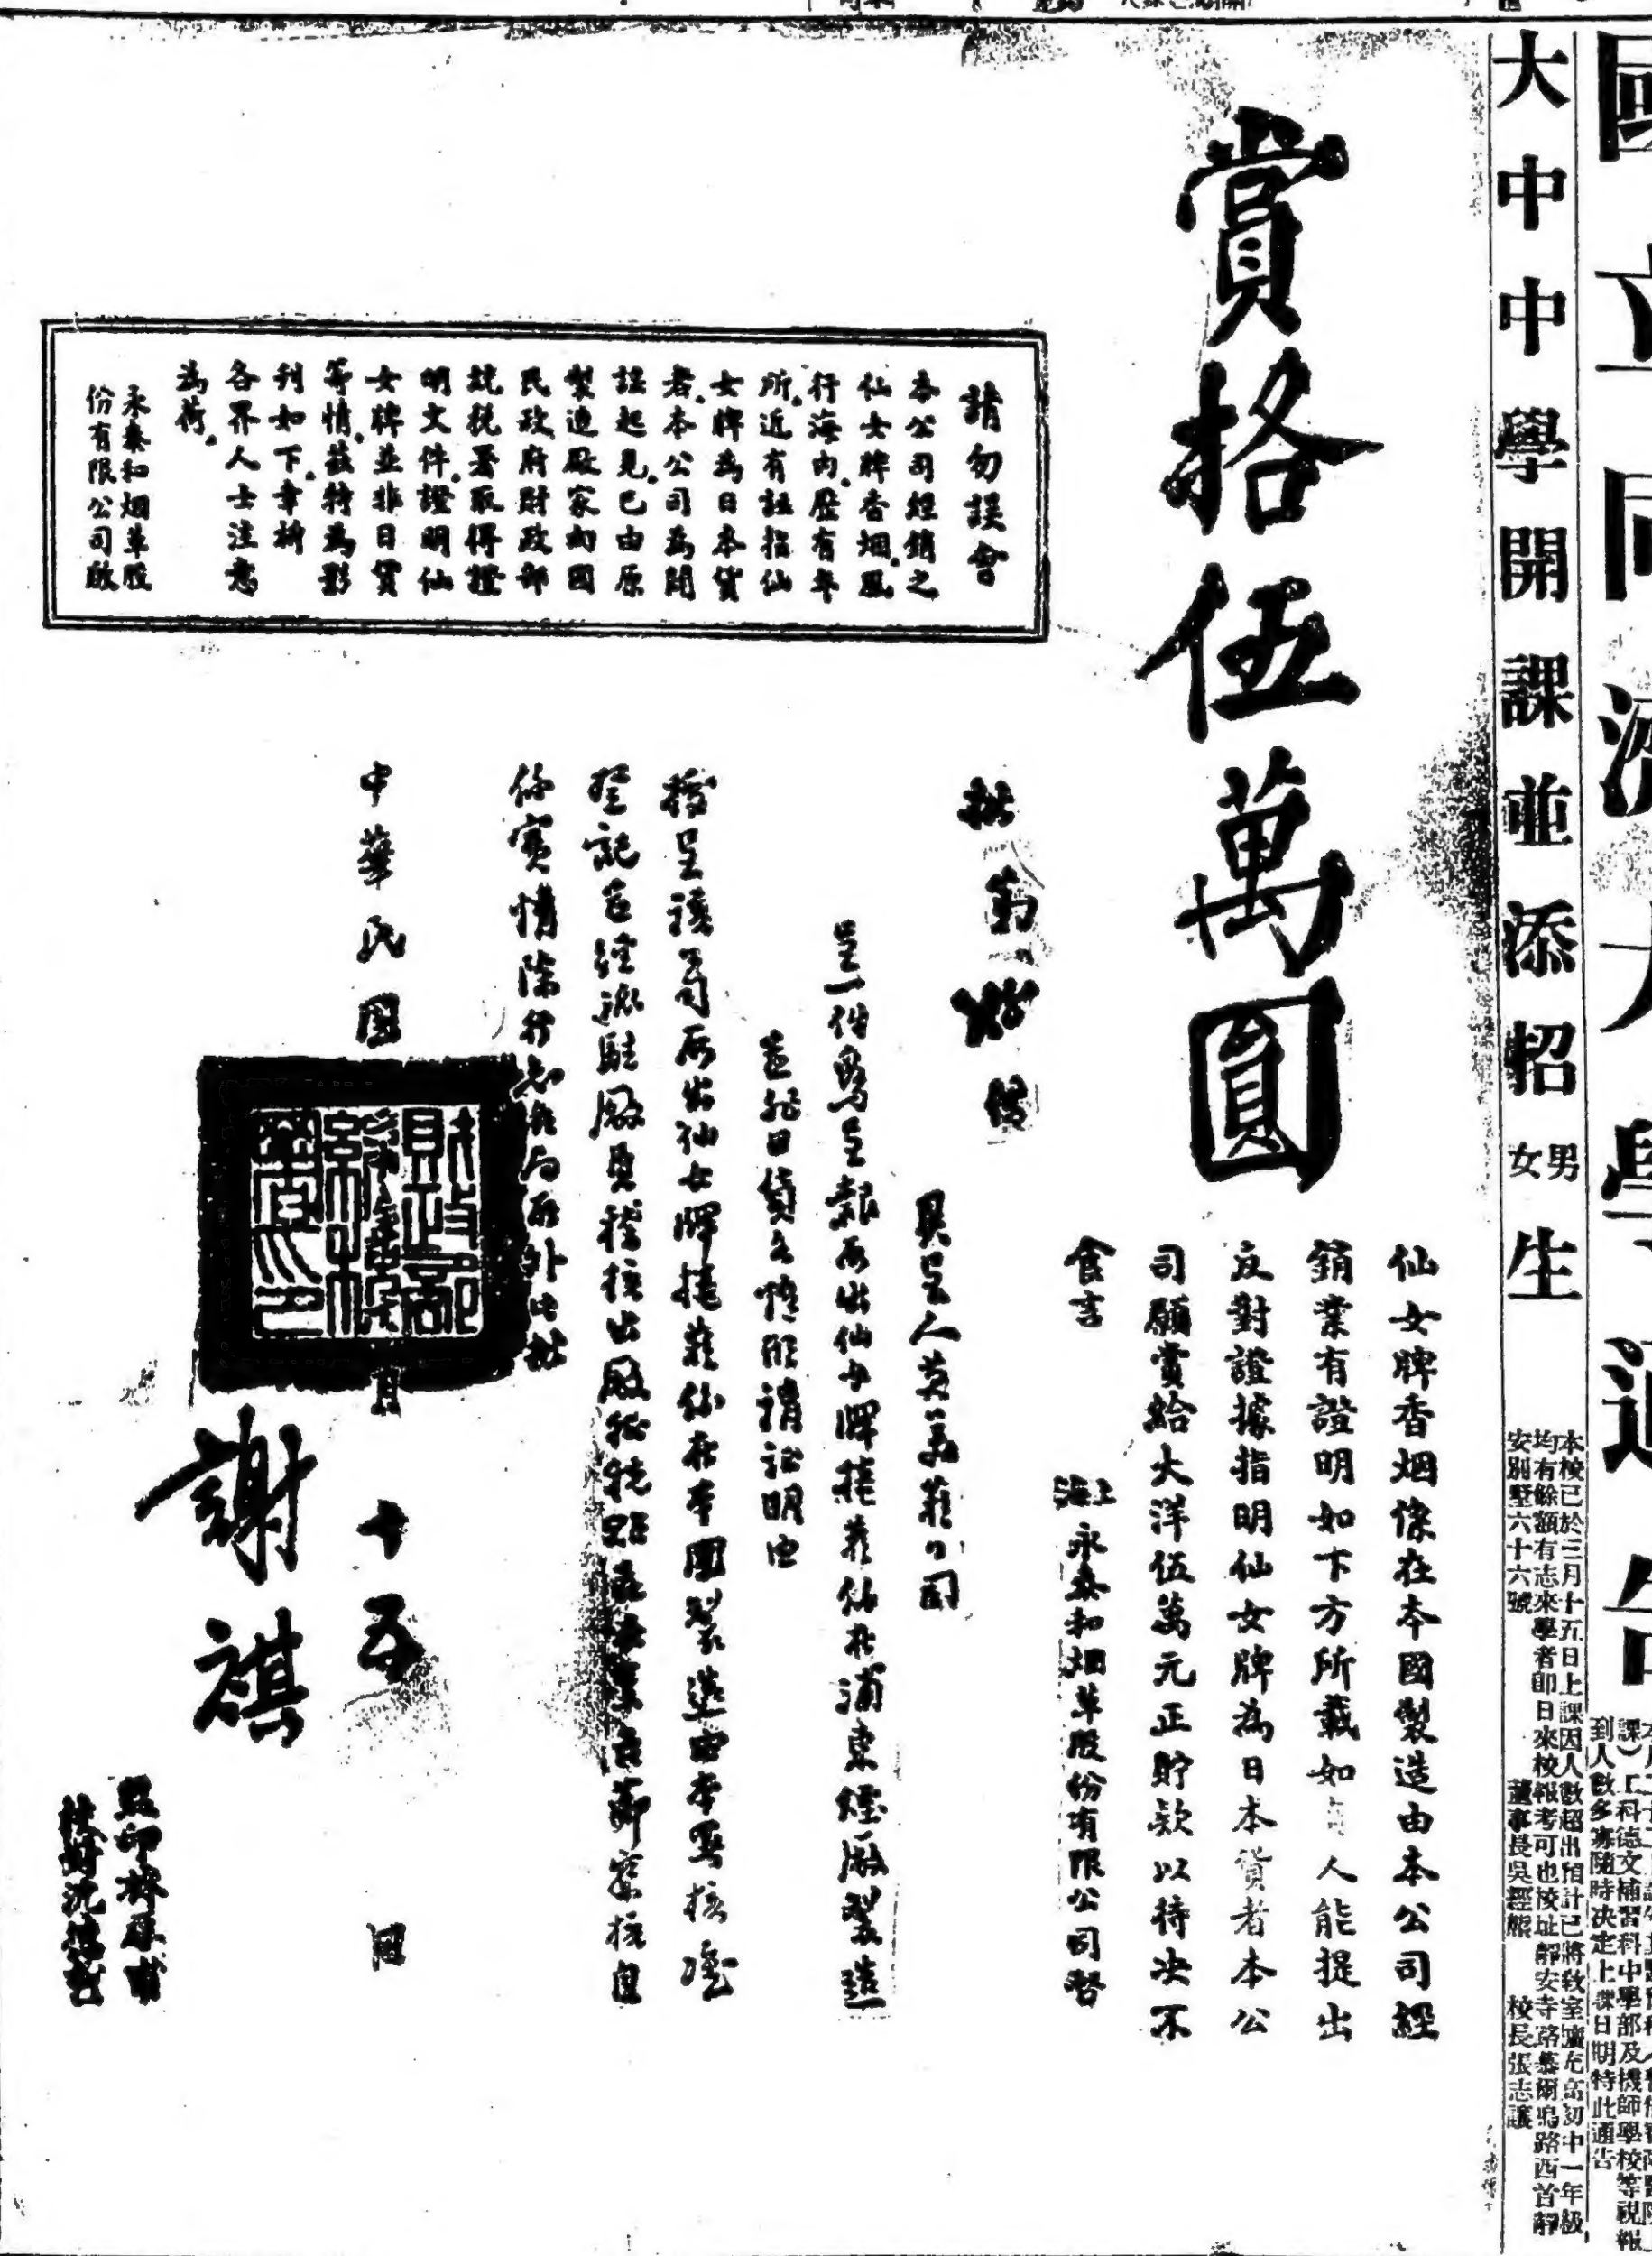 國立同濟大學通告
課）工科德文補習科中學部及機師學校等視報
到人數多寡隨時决定上課日期特此通告
大中中學開課並添招男女生
本校已於三月十五日上課因人數超出預計已將教室擴充高初中一年級
均有餘額有志來學者卽日來校報考可也校址靜安寺路慕爾鳴路西首靜
安別墅六十六號　董事長吳經熊　校長張志讓
賞格伍萬圓
仙女牌香烟係在本國製造由本公司經
銷業有證明如下方所載如有人能提出
反對證據指明仙女牌為日本貨者本公
司願賞給大洋伍萬元正貯欵以待决不
食言
上海永泰和烟草股份有限公司啓
請勿誤會
本公司經銷之
仙女牌香烟。風
行海內。歷有年
所。近有誣指仙
女牌為日本貨
者。本公司為闢
誣起見。已由原
製造廠家向國
民政府財政部
統稅署取得證
明文件。證明仙
女牌並非日貨
等情。茲特為影
刊如下。幸祈
各界人士注意
為荷。
永泰和烟草股
份有限公司啟
批 第 號
具呈人英美菸公司
呈一件為呈報所出仙女牌捲菸係在浦東煙廠製造
並非日貨各情形請証明由
據呈該公司所出仙女牌捲菸係在本國製造曾本署核准
登記各經派駐廠員稽核出廠
係實情除行知各局所外此批
中華民國 月 十五 日
財政部
印
謝祺
監印
校對沈